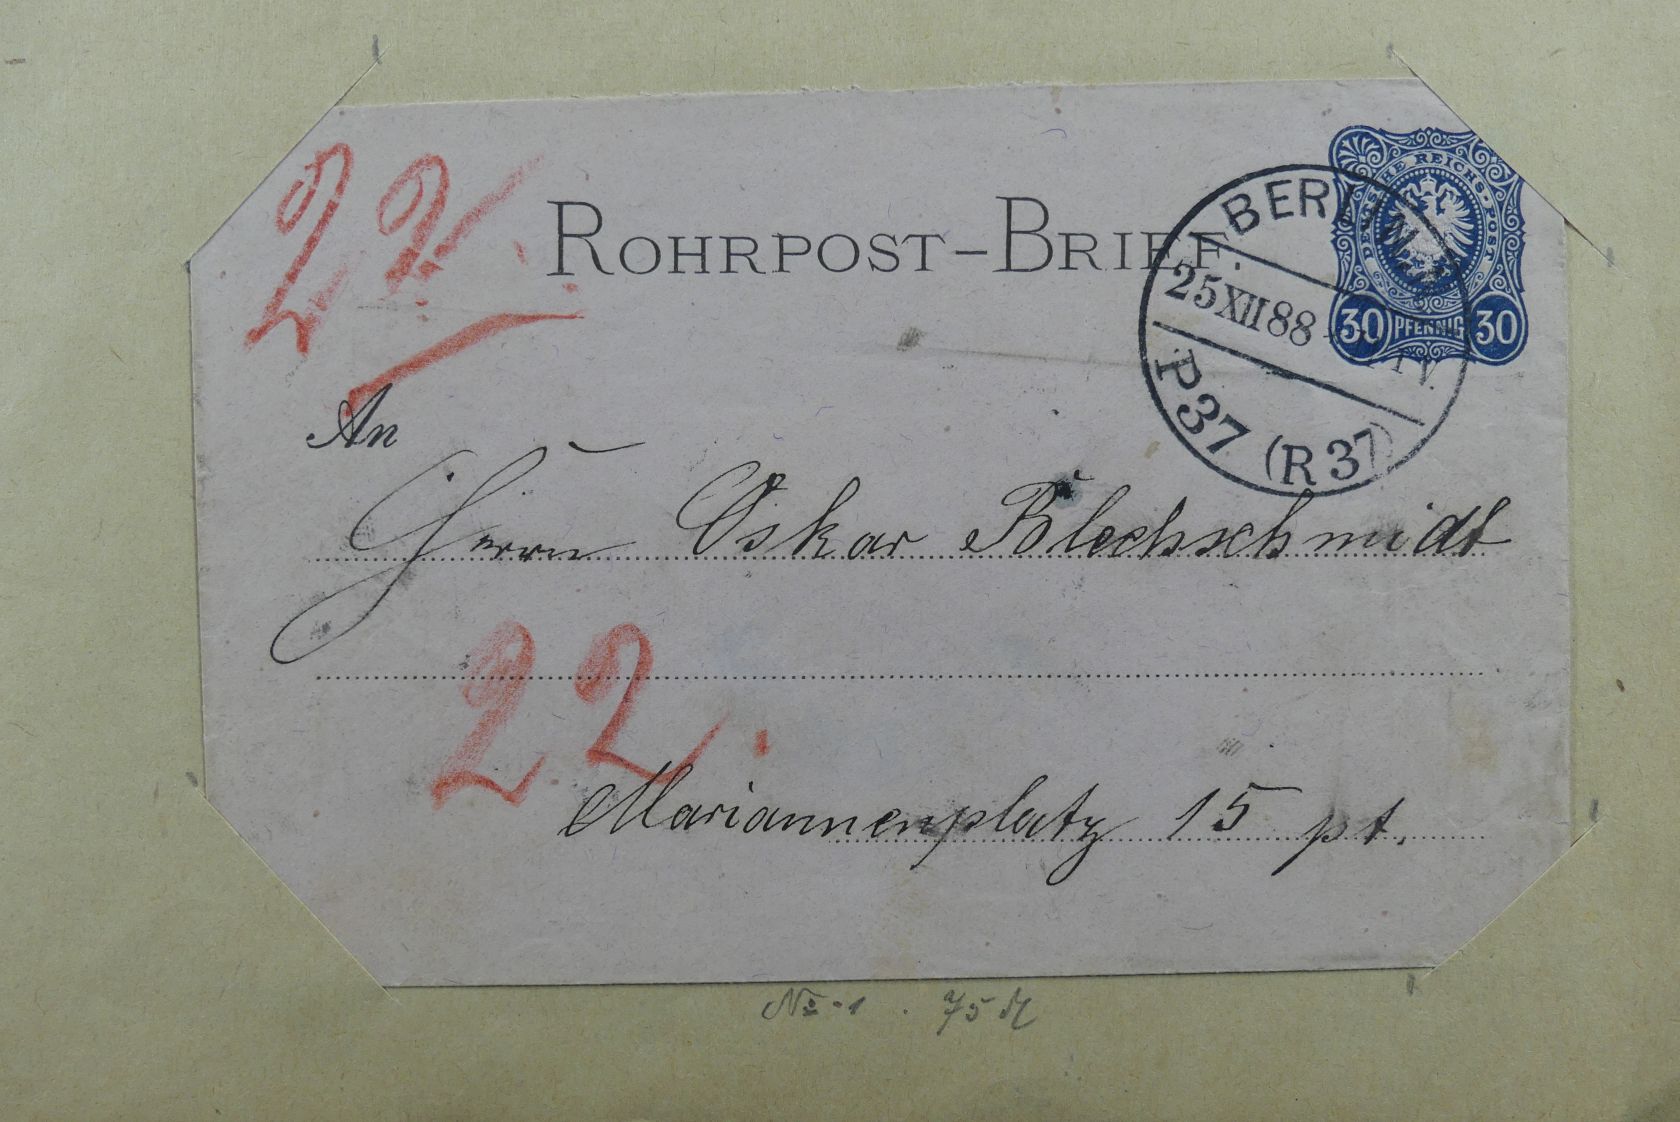 22.
ROHRPOST-BRIEF.
DEUTSCHE REICHS-POST
30 PFENNIG 30
BERLIN
25 XII 88
P 37 (R 37)
An
Herrn Oskar Blechschmidt
22.
Mariannenplatz 15 pt.
No 1. 75 M